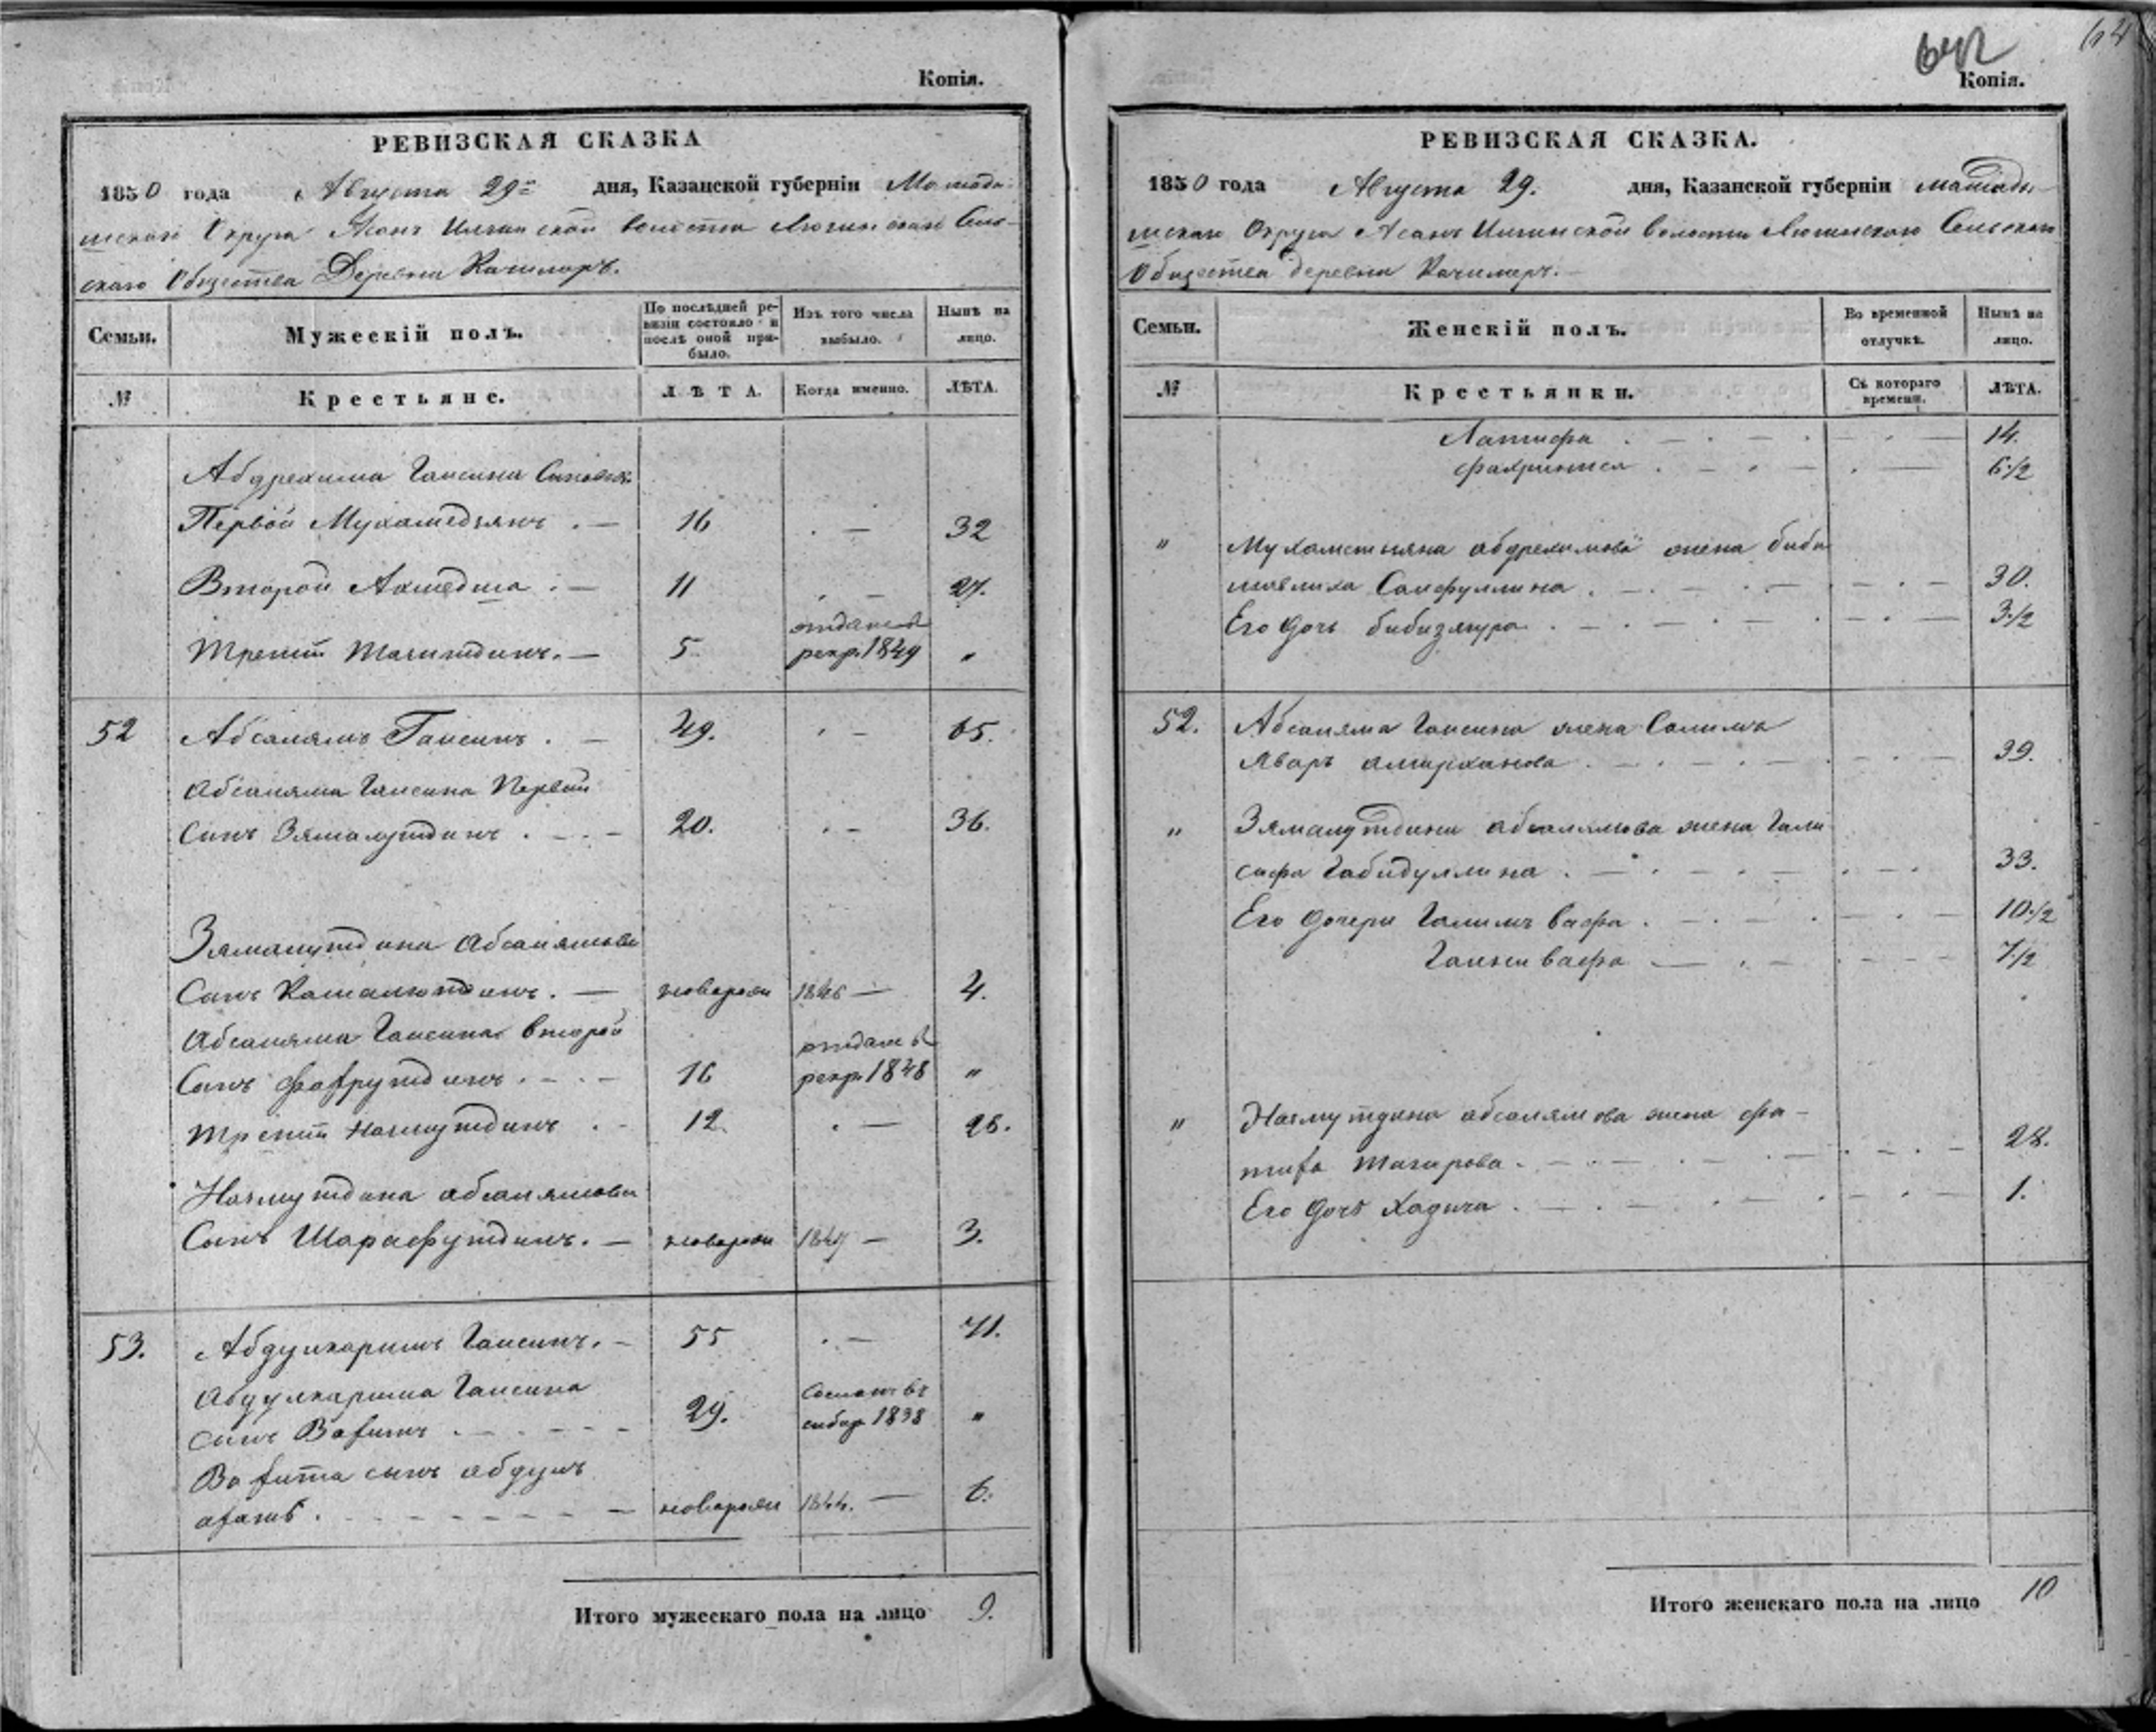 Копія.
РЕВИЗСКАЯ СКАЗКА
1850 года Августа 29 дня, Казанской губерніи Мамады-
шскаго Округа Асанъ Илгинской волости Люгинскаго Сель-
скаго Общества Деревни Качимиръ.
Семьи.
Мужескій полъ.
По послѣдней ре-
визіи состояло и
послѣ оной при-
было.
Изъ того числа
выбыло.
Нынѣ на
лицо.
№
Крестьяне.
ЛѢТА.
Когда именно.
ЛѢТА.
Абдрехима Гаисина Сыновья
Первой Мухамедьянъ . — 16 . — 32
Второй Ахмедша . — 11 . — 27.
отданъ в
Третій Тазитдинъ. — 5 рекр. 1849 "
52 Абсалямъ Гаисинъ . — 49. . — 65.
Абсаляма Гаисина Первый
Сынъ Зямалутдинъ . — . — 20. . — 36.
Зямалутдина Абсалямова
Сынъ Камалютдинъ. — новорож 1846 — 4.
Абсаляма Гаисина второй
отданъ в
Сынъ Фахрутдинъ . — . — 16 рекр. 1848 "
Третій Назмутдинъ . - 12. . — 28.
Назмутдина абсалямова
Сынъ Шарафутдинъ. — новорож 1847 — 3.
53. Абдулкаримъ Гаисинъ. — 55 . — 71.
Абдулкарима Гаисина
Сосланъ въ
сынъ Вагитъ . — . — 29. сибир 1838 "
Вагита сынъ абдулъ
новорож 1844. — 6.
Итого мужескаго пола на лицо 9.
642
64
Копія.
РЕВИЗСКАЯ СКАЗКА.
1850 года Августа 29. дня, Казанской губерніи мамады-
шскаго Округа Асанъ Илгинской волости Люгинскаго Сельскаго
Общества деревни Качимиръ.
Семьи.
Женскій полъ.
Во временной
отлучкѣ.
Нынѣ на
лицо.
№
Крестьянки.
Съ котораго
времени.
ЛѢТА.
Латифа . — . — . 14.
Фахриниса . — . — . — 6 1/2
" Мухаметьяна абдрехимова жена биби
мявлиха Сайфуллина . — . — 30.
Его дочь бибизяура . — . — 3 1/2
52. Абсаляма Гаисина жена Салимъ
Яваръ амирханова . — . — 39.
" Зямалутдина абсалямова жена Гали
сафа Габидуллина . — . — 33.
Его дочери Галимъ вафа . — . — 10 1/2
Гайни вафа — . — 7 1/2
" Назмутдина абсалямова жена фа-
тиха Тагирова . — . — 28.
Его дочь Хадича . — . — 1.
Итого женскаго пола на лицо 10